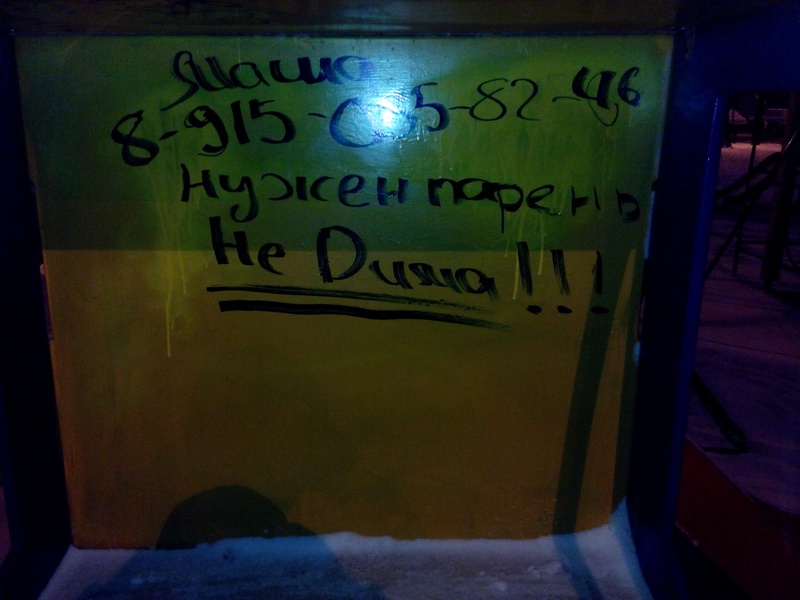 Маша
8-915-035-82-46
нужен парень
Не Дима!!!